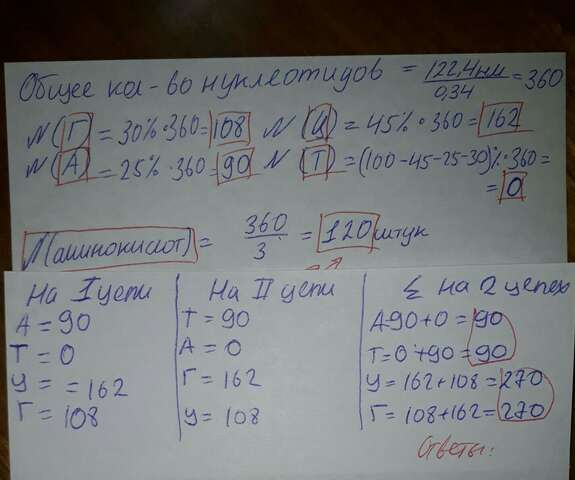 Общее кол-во нуклеотидов = 122,4нм / 0,34 = 360
N(Г) = 30% · 360 = 108 N(Ц) = 45% · 360 = 162
N(А) = 25% · 360 = 90 N(Т) = (100-45-25-30)% · 360 =
= 0
N(аминокислот) = 360 / 3 = 120 штук
На I цепи
А = 90
Т = 0
Ц = = 162
Г = 108
На II цепи
Т = 90
А = 0
Г = 162
Ц = 108
Σ на 2 цепях
А=90+0 = 90
Т=0+90 = 90
Ц = 162+108 = 270
Г = 108+162 = 270
Ответы: